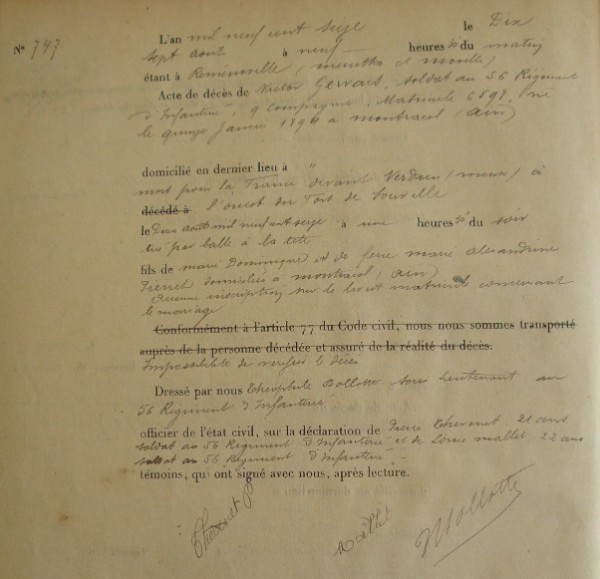 N° 747
L'an mil neuf cent seize le Dix
sept aout à neuf heures 30 du matin
étant à Remenoville (meurthe et moselle)
Acte de décès de Victor Gervais, soldat au 56 Régiment
d'Infanterie, 9 Compagnie, Matricule 6598, né
le quinze Janvier 1894 à montracol (ain)
domicilié en dernier lieu à "
mort pour la France devant Verdun (meuse) à
décédé à l'ouest du Fort de Souville
le Deux aout mil neuf cent seize à une heures 30 du soir
tué par balle à la tête
fils de marie Dominique et de feue marie alexandrine
domiciliés à montracol (ain)
aucune inscription sur le livret matricule concernant
le mariage
Conformément à l'article 77 du Code civil, nous nous sommes transporté
auprès de la personne décédée et assuré de la réalité du décès.
Impossibilité de verifier le décès
Dressé par nous Théophile sous lieutenant au
56 Régiment d'Infanterie
officier de l'état civil, sur la déclaration de Pierre Thevenet 21 ans
soldat au 56 Régiment d'Infanterie et de Louis mallet 22 ans
soldat au 56 Régiment d'Infanterie
témoins, qui ont signé avec nous, après lecture.
Thevenet P
Mallet